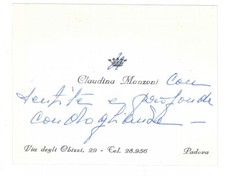 Claudina Manzoni con
sentite e profonde
condoglianze —
Via degli Obizzi, 29 - Tel. 28.956 Padova